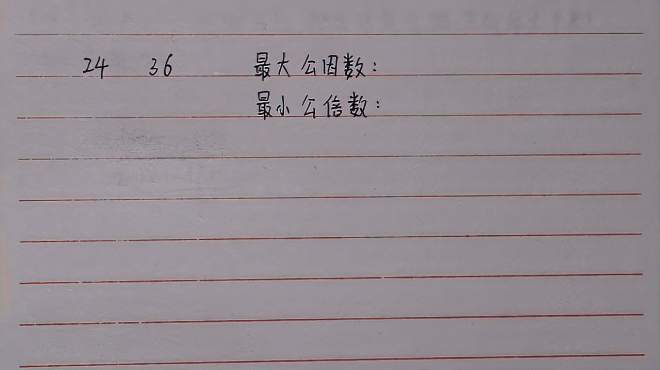 24 36 最大公因数:
最小公倍数: